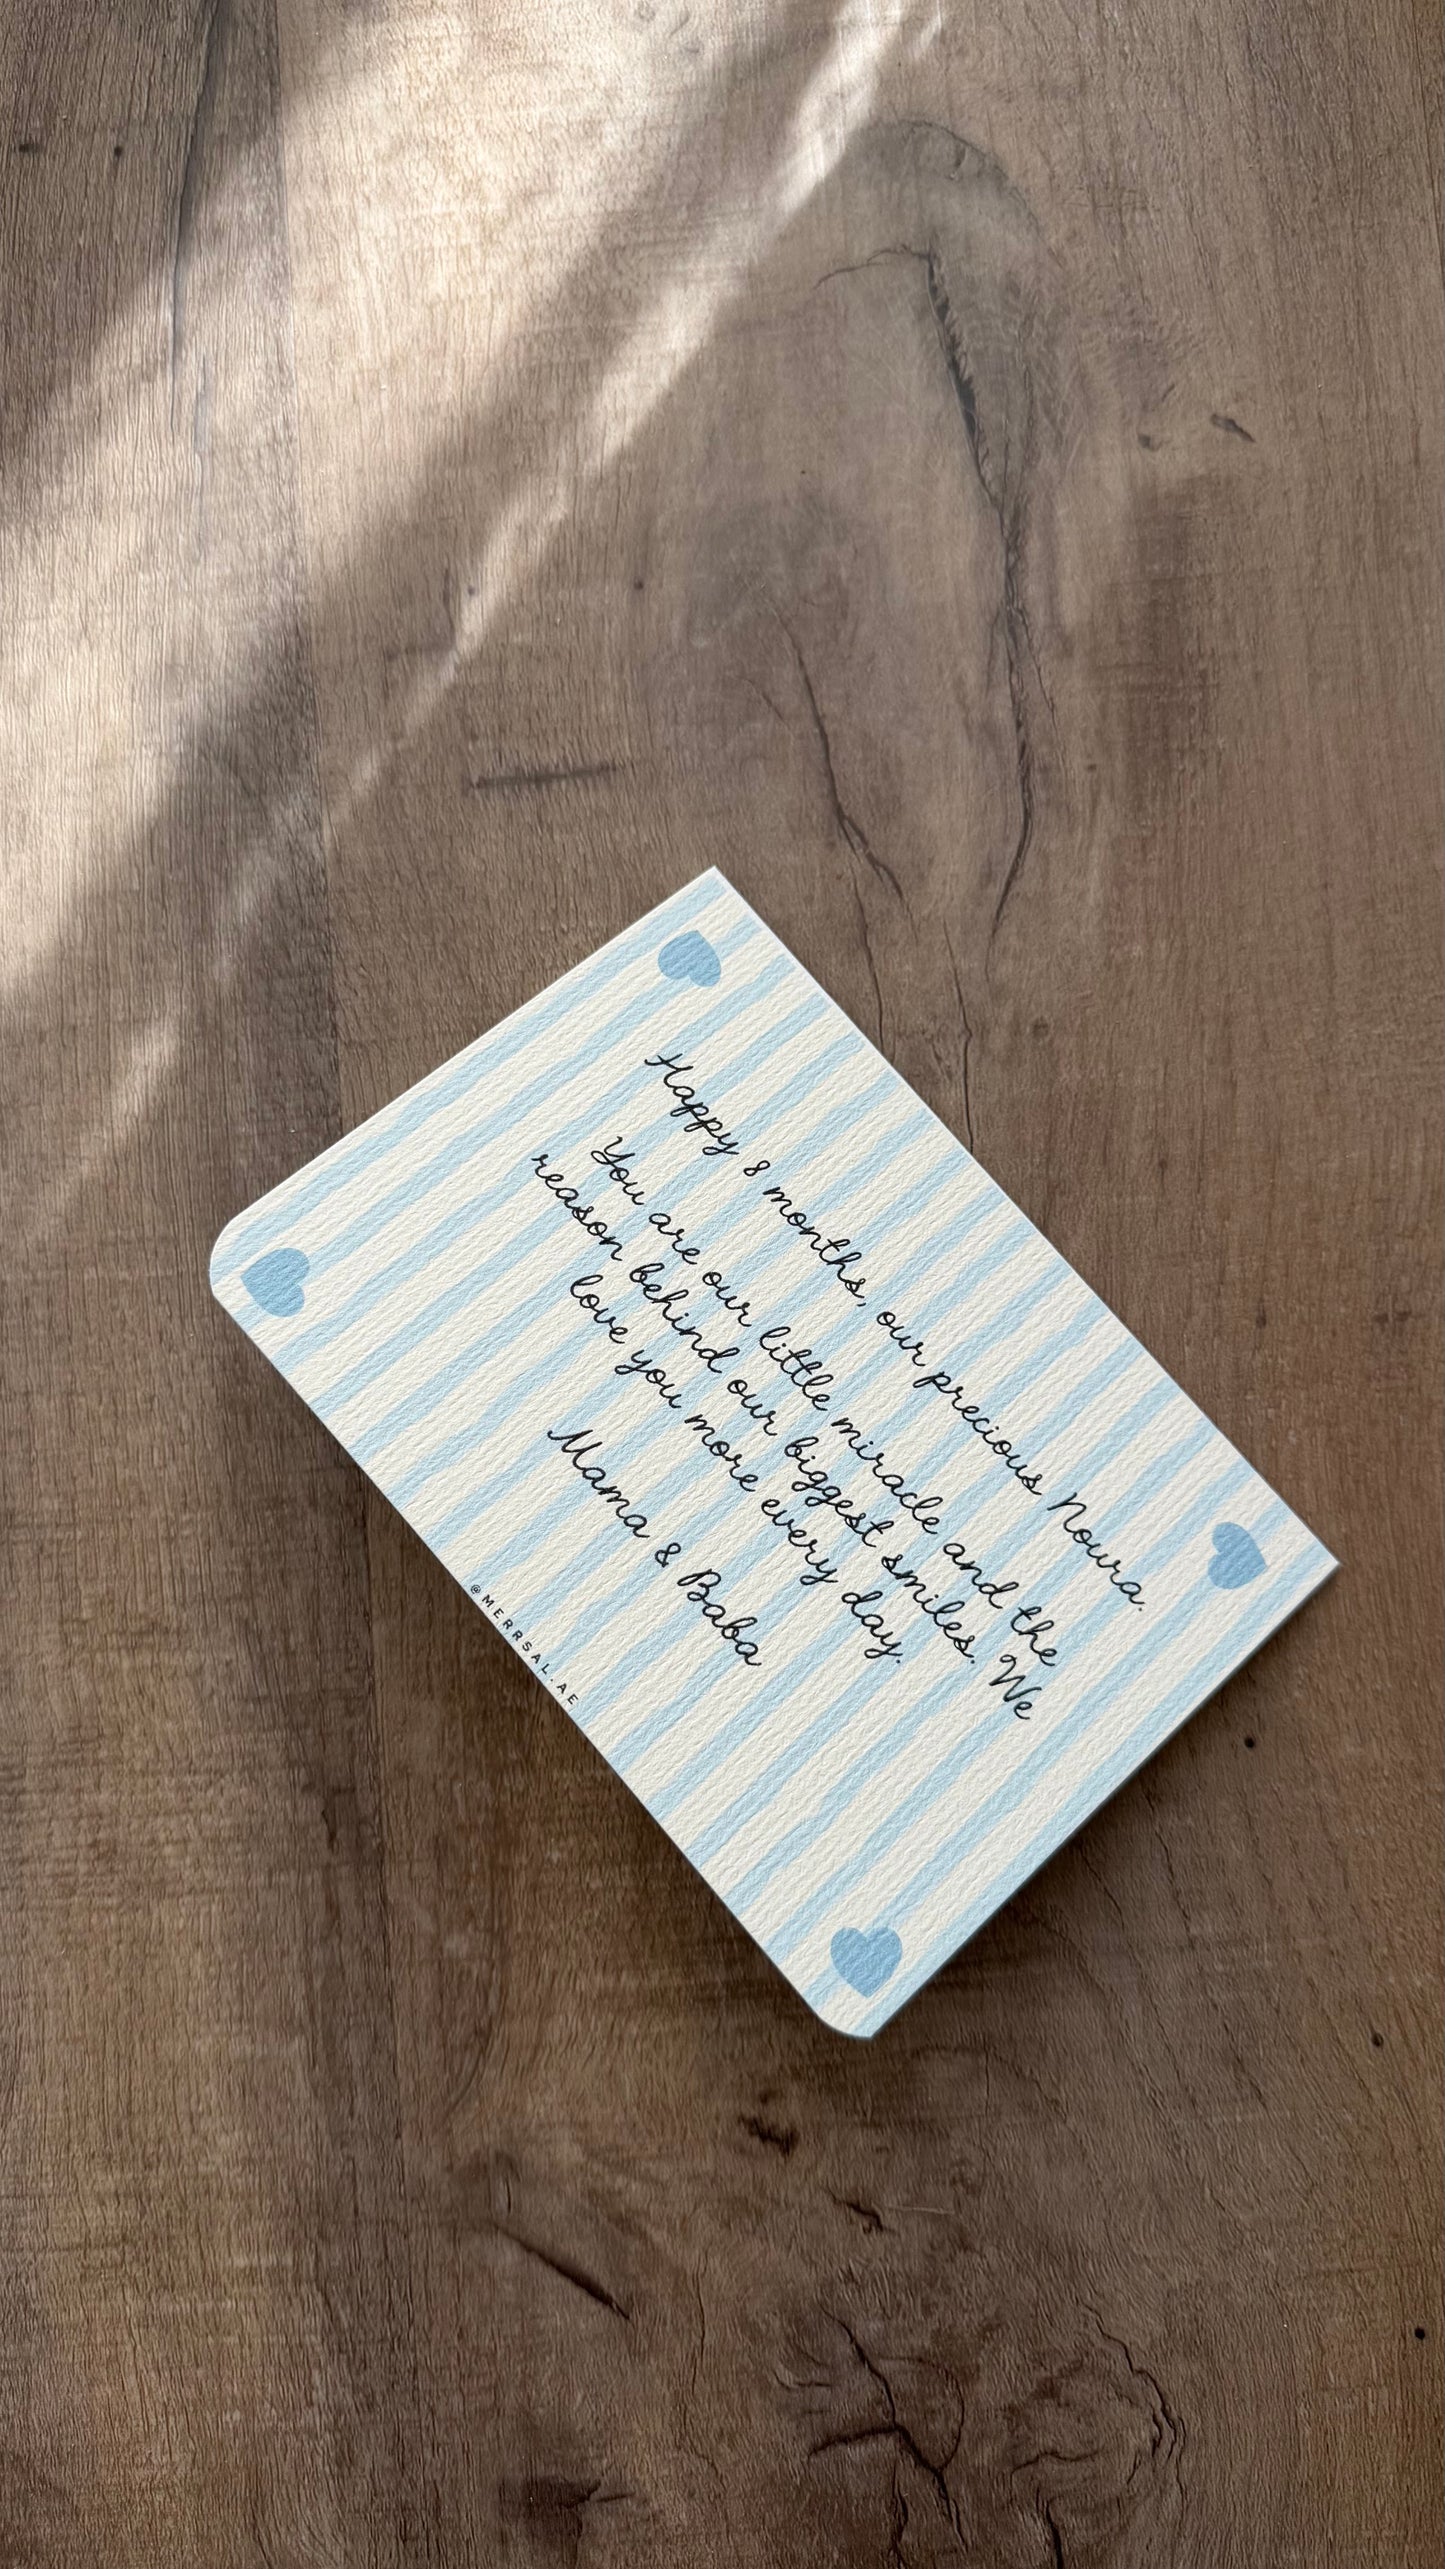 Happy 8 months, our precious Noura.
You are our little miracle and the
reason behind our biggest smiles. We
love you more every day.
Mama & Baba
@MERRSAL.AE